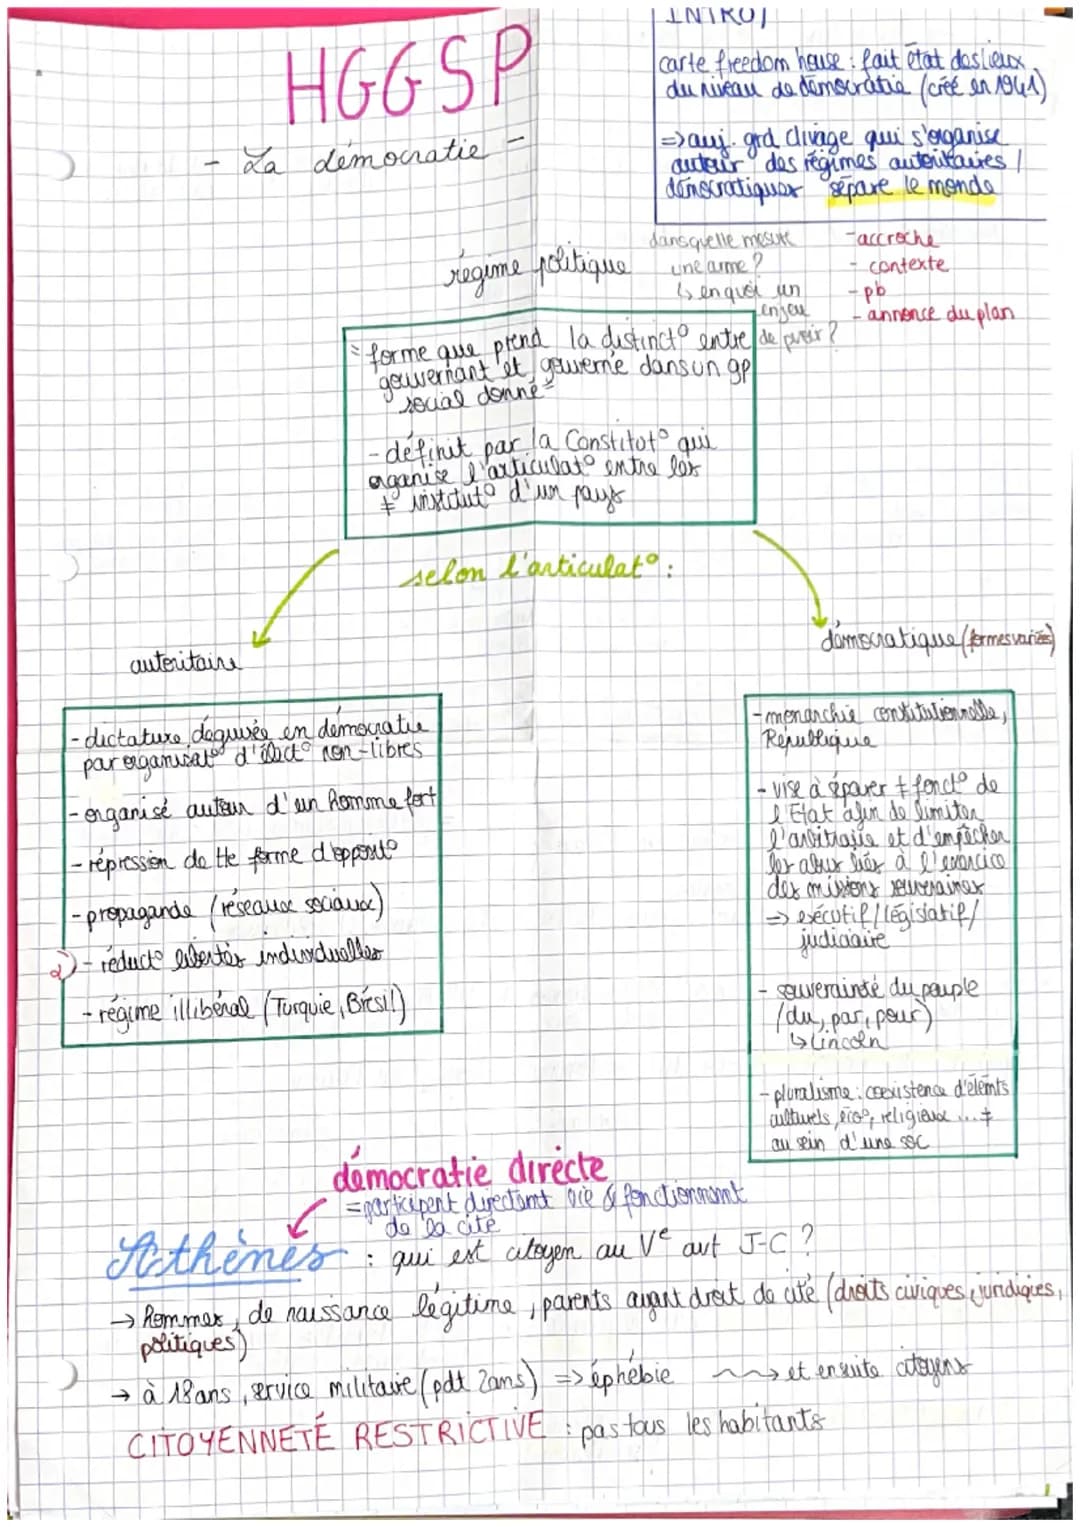 HGGSP
- La démocratie -
INTRO/
carte freedom house : fait état des lieux
du niveau de démocratie (créé en 1941)
=> auj. grd clivage qui s'organise
autour des régimes autoritaires /
démocratiques sépare le monde
dans quelle mesure
une arme ?
↳ en quoi un
enjeu
de pvoir ?
- accroche
- contexte
- pb
- annonce du plan
régime politique
= forme que prend la distinct° entre
gouvernant et gouverné dans un gp
social donné =
- définit par la Constitut° qui
organise l'articulat° entre les
≠ institut° d'un pays
selon l'articulat° :
autoritaire
- dictature déguisée en démocratie
par organisat° d'élect° non-libres
- organisé autour d'un homme fort
- répression de tte forme d'opposit°
- propagande (réseaux sociaux)
2) - réduct° libertés individuelles
- régime illibéral (Turquie, Brésil)
démocratique (formes variées)
- monarchie constitutionnelle,
République
- vise à éparer ≠ fonct° de
l'Etat afin de limiter
l'arbitraire et d'empêcher
les abus liés à l'exercice
des missions souveraines
=> exécutif / législatif /
judiciaire
- souveraineté du peuple
(du, par, pour)
↳ Lincoln
- pluralisme : coexistence d'élémts
culturels, éco°, religieux ... ≠
au sein d'une soc
démocratie directe
= participent directemt vie & fonctionnemnt
de la cité
Athènes : qui est citoyen au Ve avt J-C ?
→ hommes, de naissance légitime, parents ayant droit de cité (droits civiques, juridiques,
politiques)
→ à 18 ans, service militaire (pdt 2ans) => éphébie ~~> et ensuite citoyens
CITOYENNETÉ RESTRICTIVE : pas tous les habitants